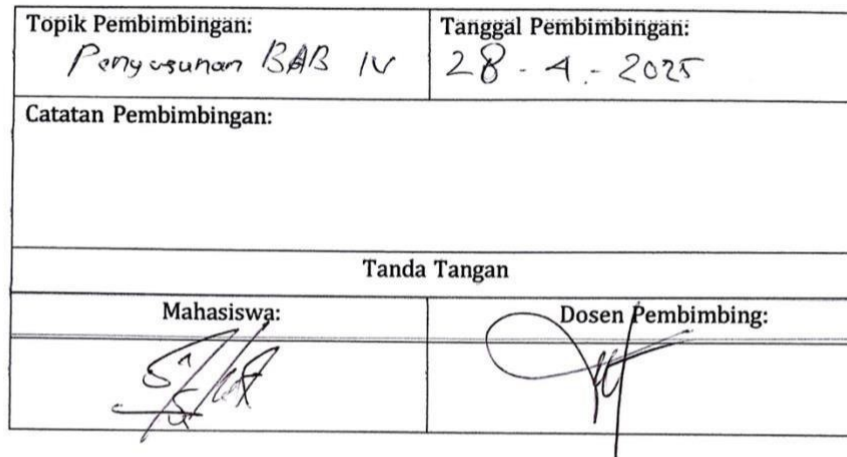 Topik Pembimbingan:
Penyusunan BAB IV
Tanggal Pembimbingan:
28 - 4 - 2025
Catatan Pembimbingan:
Tanda Tangan
Mahasiswa:
Dosen Pembimbing: